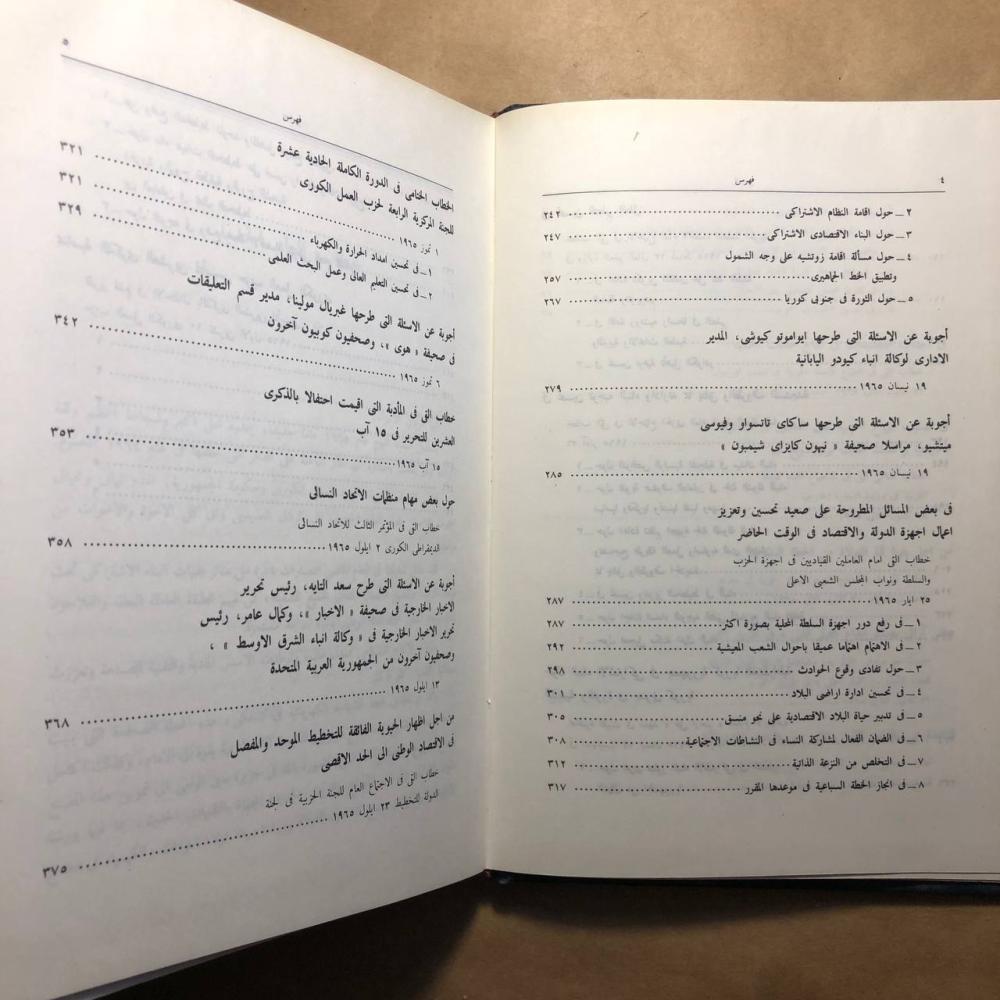 ٤
فهرس
٢ــ حول اقامة النظام الاشتراكى ٢٤٢
٣ــ حول البناء الاقتصادى الاشتراكى ٢٤٧
٤ــ حول مسألة اقامة زوتشيه على وجه الشمول
وتطبيق الخط الجماهيرى ٢٥٧
٥ــ حول الثورة فى جنوبى كوريا ٢٦٧
أجوبة عن الاسئلة التى طرحها ايواموتو كيوشى، المدير
الادارى لوكالة انباء كيودو اليابانية
١٩ نيسان ١٩٦٥ ٢٧٩
أجوبة عن الاسئلة التى طرحها ساكاى تاتسواو وفيوسى
ميتشيو، مراسلا صحيفة « نيهون كايزاى شيمبون »
١٩ نيسان ١٩٦٥ ٢٨٥
فى بعض المسائل المطروحة على صعيد تحسين وتعزيز
اعمال اجهزة الدولة والاقتصاد فى الوقت الحاضر
خطاب القى امام العاملين القياديين فى اجهزة الحزب
والسلطة ونواب المجلس الشعبى الاعلى
٢٥ ايار ١٩٦٥ ٢٨٧
١ــ فى رفع دور اجهزة السلطة المحلية بصورة اكثر ٢٨٧
٢ــ فى الاهتمام اهتماما عميقا باحوال الشعب المعيشية ٢٩٢
٣ــ حول تفادى وقوع الحوادث ٢٩٨
٤ــ فى تحسين ادارة اراضى البلاد ٣٠١
٥ــ فى تدبير حياة البلاد الاقتصادية على نحو منسق ٣٠٥
٦ــ فى الضمان الفعال لمشاركة النساء فى النشاطات الاجتماعية ٣٠٨
٧ــ فى التخلص من النزعة الذاتية ٣١٢
٨ــ فى انجاز الخطة السباعية فى موعدها المقرر ٣١٧
٥
فهرس
الخطاب الختامى فى الدورة الكاملة الحادية عشرة
للجنة المركزية الرابعة لحزب العمل الكورى
١ تموز ١٩٦٥ ٣٢١
١ــ فى تحسين امداد الحرارة والكهرباء ٣٢١
٢ــ فى تحسين التعليم العالى وعمل البحث العلمى ٣٢٩
أجوبة عن الاسئلة التى طرحها غبريال مولينا، مدير قسم التعليقات
فى صحيفة « هوى »، وصحفيون كوبيون آخرون
٦ تموز ١٩٦٥ ٣٤٢
خطاب القى فى المأدبة التى اقيمت احتفالا بالذكرى
العشرين للتحرير فى ١٥ آب
١٥ آب ١٩٦٥ ٣٥٣
حول بعض مهام منظمات الاتحاد النسائى
خطاب القى فى المؤتمر الثالث للاتحاد النسائى
الديمقراطى الكورى ٢ ايلول ١٩٦٥ ٣٥٨
أجوبة عن الاسئلة التى طرح سعد التايه، رئيس تحرير
الاخبار الخارجية فى صحيفة « الاخبار »، وكمال عامر، رئيس
تحرير الاخبار الخارجية فى « وكالة انباء الشرق الاوسط » ،
وصحفيون آخرون من الجمهورية العربية المتحدة
١٣ ايلول ١٩٦٥ ٣٦٨
من اجل اظهار الحيوية الفائقة للتخطيط الموحد والمفصل
فى الاقتصاد الوطنى الى الحد الاقصى
خطاب القى فى الاجتماع العام للجنة الحزبية فى لجنة
الدولة للتخطيط ٢٣ ايلول ١٩٦٥ ٣٧٥